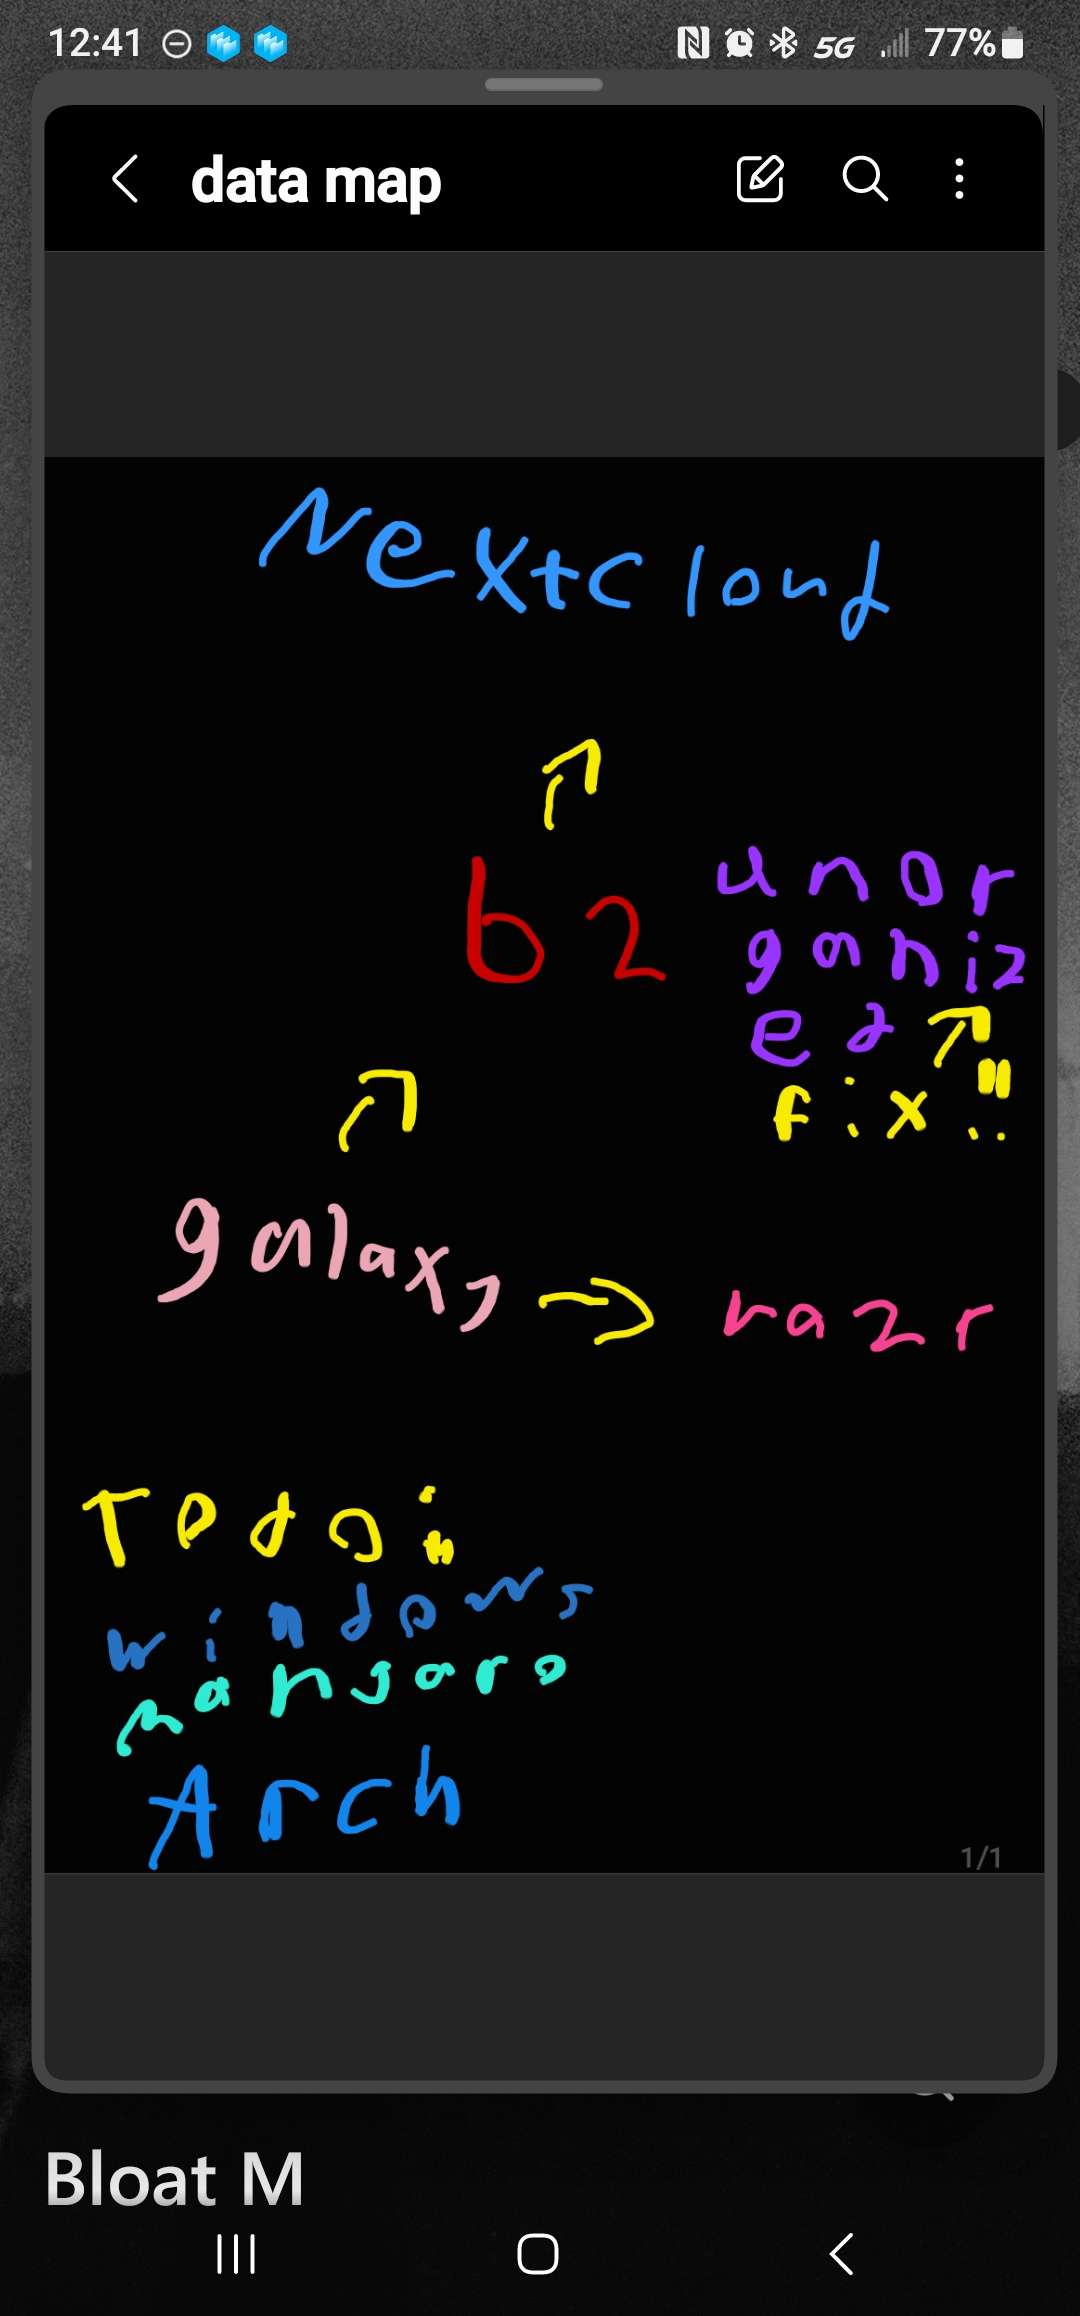 12:41 5G 77%
data map
Nextcloud
b2
unor
ganiz
ed
fix!!
galaxy → razr
Todo:
windows
manjaro
Arch
1/1
Bloat M